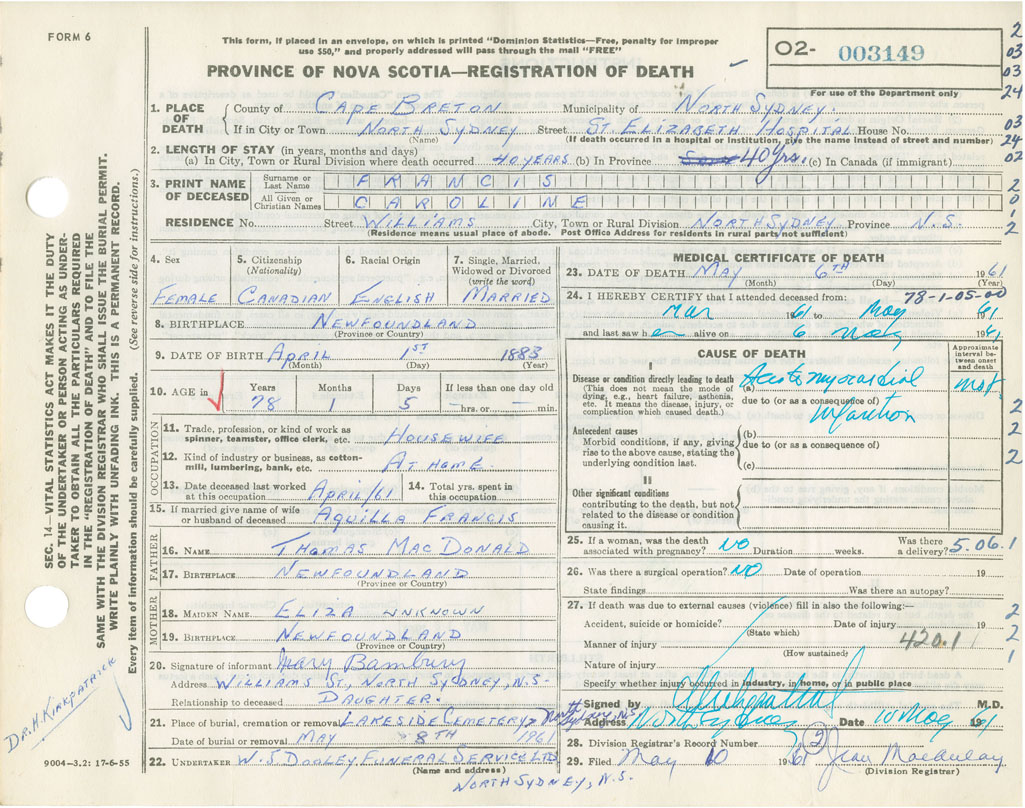 FORM 6
This form, if placed in an envelope, on which is printed "Dominion Statistics—Free, penalty for improper
use $50," and properly addressed will pass through the mail "FREE"
PROVINCE OF NOVA SCOTIA—REGISTRATION OF DEATH
02- 003149
For use of the Department only
2
03
03
24
03
24
02
2
0
1
2
1. PLACE OF DEATH
County of CAPE BRETON Municipality of NORTH SYDNEY.
If in City or Town NORTH SYDNEY Street ST. ELIZABETH HOSPITAL House No.
(Name) (If death occurred in a hospital or institution, give the name instead of street and number)
2. LENGTH OF STAY (in years, months and days)
(a) In City, Town or Rural Division where death occurred 40 YEARS (b) In Province 40 yrs. (c) In Canada (if immigrant)
3. PRINT NAME OF DECEASED
Surname or Last Name FRANCIS
All Given or Christian Names CAROLINE
RESIDENCE No. Street WILLIAMS City, Town or Rural Division NORTH SYDNEY Province N.S.
(Residence means usual place of abode. Post Office Address for residents in rural parts not sufficient)
4. Sex
FEMALE
5. Citizenship
(Nationality)
CANADIAN
6. Racial Origin
ENGLISH
7. Single, Married,
Widowed or Divorced
(write the word)
MARRIED
8. BIRTHPLACE NEWFOUNDLAND
(Province or Country)
9. DATE OF BIRTH APRIL 1ST 1883
(Month) (Day) (Year)
10. AGE in
Years Months Days If less than one day old
78 1 5 — hrs. or — min.
OCCUPATION
11. Trade, profession, or kind of work as
spinner, teamster, office clerk, etc. HOUSEWIFE
12. Kind of industry or business, as cotton-
mill, lumbering, bank, etc. AT HOME
13. Date deceased last worked
at this occupation APRIL/61
14. Total yrs. spent in
this occupation
15. If married give name of wife
or husband of deceased AQUILLA FRANCIS
FATHER
16. NAME THOMAS MACDONALD
17. BIRTHPLACE NEWFOUNDLAND
(Province or Country)
MOTHER
18. MAIDEN NAME ELIZA UNKNOWN
19. BIRTHPLACE NEWFOUNDLAND
(Province or Country)
20. Signature of informant Mary Bambury
Address WILLIAMS ST, NORTH SYDNEY, N.S-
Relationship to deceased DAUGHTER.
21. Place of burial, cremation or removal LAKESIDE CEMETERY, North Sydney N.S.
Date of burial or removal MAY 8TH 1961
22. UNDERTAKER W. J. DOOLEY FUNERAL SERVICE LTD
(Name and address)
NORTH SYDNEY, N.S.
MEDICAL CERTIFICATE OF DEATH
23. DATE OF DEATH MAY 6TH 1961
(Month) (Day) (Year)
24. I HEREBY CERTIFY that I attended deceased from: 78-1-05-00
Mar 1961 to May 1961
and last saw her alive on 6 May 1961
CAUSE OF DEATH
Approximate
interval be-
tween onset
and death
I
Disease or condition directly leading to death (a) Acute myocardial
(This does not mean the mode of
dying, e.g., heart failure, asthenia,
etc. It means the disease, injury, or
complication which caused death.)
due to (or as a consequence of)
infarction
Antecedent causes
Morbid conditions, if any, giving
rise to the above cause, stating the
underlying condition last.
(b)
due to (or as a consequence of)
(c)
2
2
2
II
Other significant conditions
contributing to the death, but not
related to the disease or condition
causing it.
25. If a woman, was the death
associated with pregnancy? NO Duration weeks. Was there
a delivery? 5.06.1
26. Was there a surgical operation? NO Date of operation 19
State findings Was there an autopsy?
27. If death was due to external causes (violence) fill in also the following:—
Accident, suicide or homicide? Date of injury 19
(State which)
Manner of injury 420.1
(How sustained)
Nature of injury
Specify whether injury occurred in industry, in home, or in public place
2
2
1
Signed by M.D.
Address North Sydney Date 10 May 1961
28. Division Registrar's Record Number 2
29. Filed May 10 1961 Jean Macaulay
(Division Registrar)
SEC. 14 VITAL STATISTICS ACT MAKES IT THE DUTY
OF THE UNDERTAKER OR PERSON ACTING AS UNDER-
TAKER TO OBTAIN ALL THE PARTICULARS REQUIRED
IN THE "REGISTRATION OF DEATH" AND TO FILE THE
SAME WITH THE DIVISION REGISTRAR WHO SHALL ISSUE THE BURIAL PERMIT.
WRITE PLAINLY WITH UNFADING INK. THIS IS A PERMANENT RECORD.
Every item of information should be carefully supplied. (See reverse side for instructions.)
DR. H. KIRKPATRICK
9004-3.2: 17-6-55